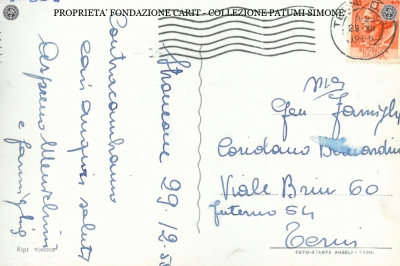 PROPRIETA' FONDAZIONE CARIT - COLLEZIONE PATUMI SIMONE
Stroncone 29.12.5
Contraccambiamo
cari auguri saluti
e famiglia
Ripr. vietata
Gen. Famiglia
Coriolano Bernardini
Viale Brin 60
Interno 54
Terni
FOTO-STAMPA ANGELI - TERNI